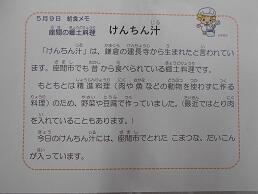 ５月９日　給食メモ
座間の郷土料理
けんちん汁
「けんちん汁」は、鎌倉の建長寺から生まれたと言われてい
ます。座間市でも昔から食べられている郷土料理です。
もともとは精進料理（肉や魚などの動物を使わずに作る
料理）のため、野菜や豆腐で作っていました。（最近ではとり肉
を入れていることもあります。）
今日のけんちん汁には、座間市でとれた こまつな、だいこん
が入っています。